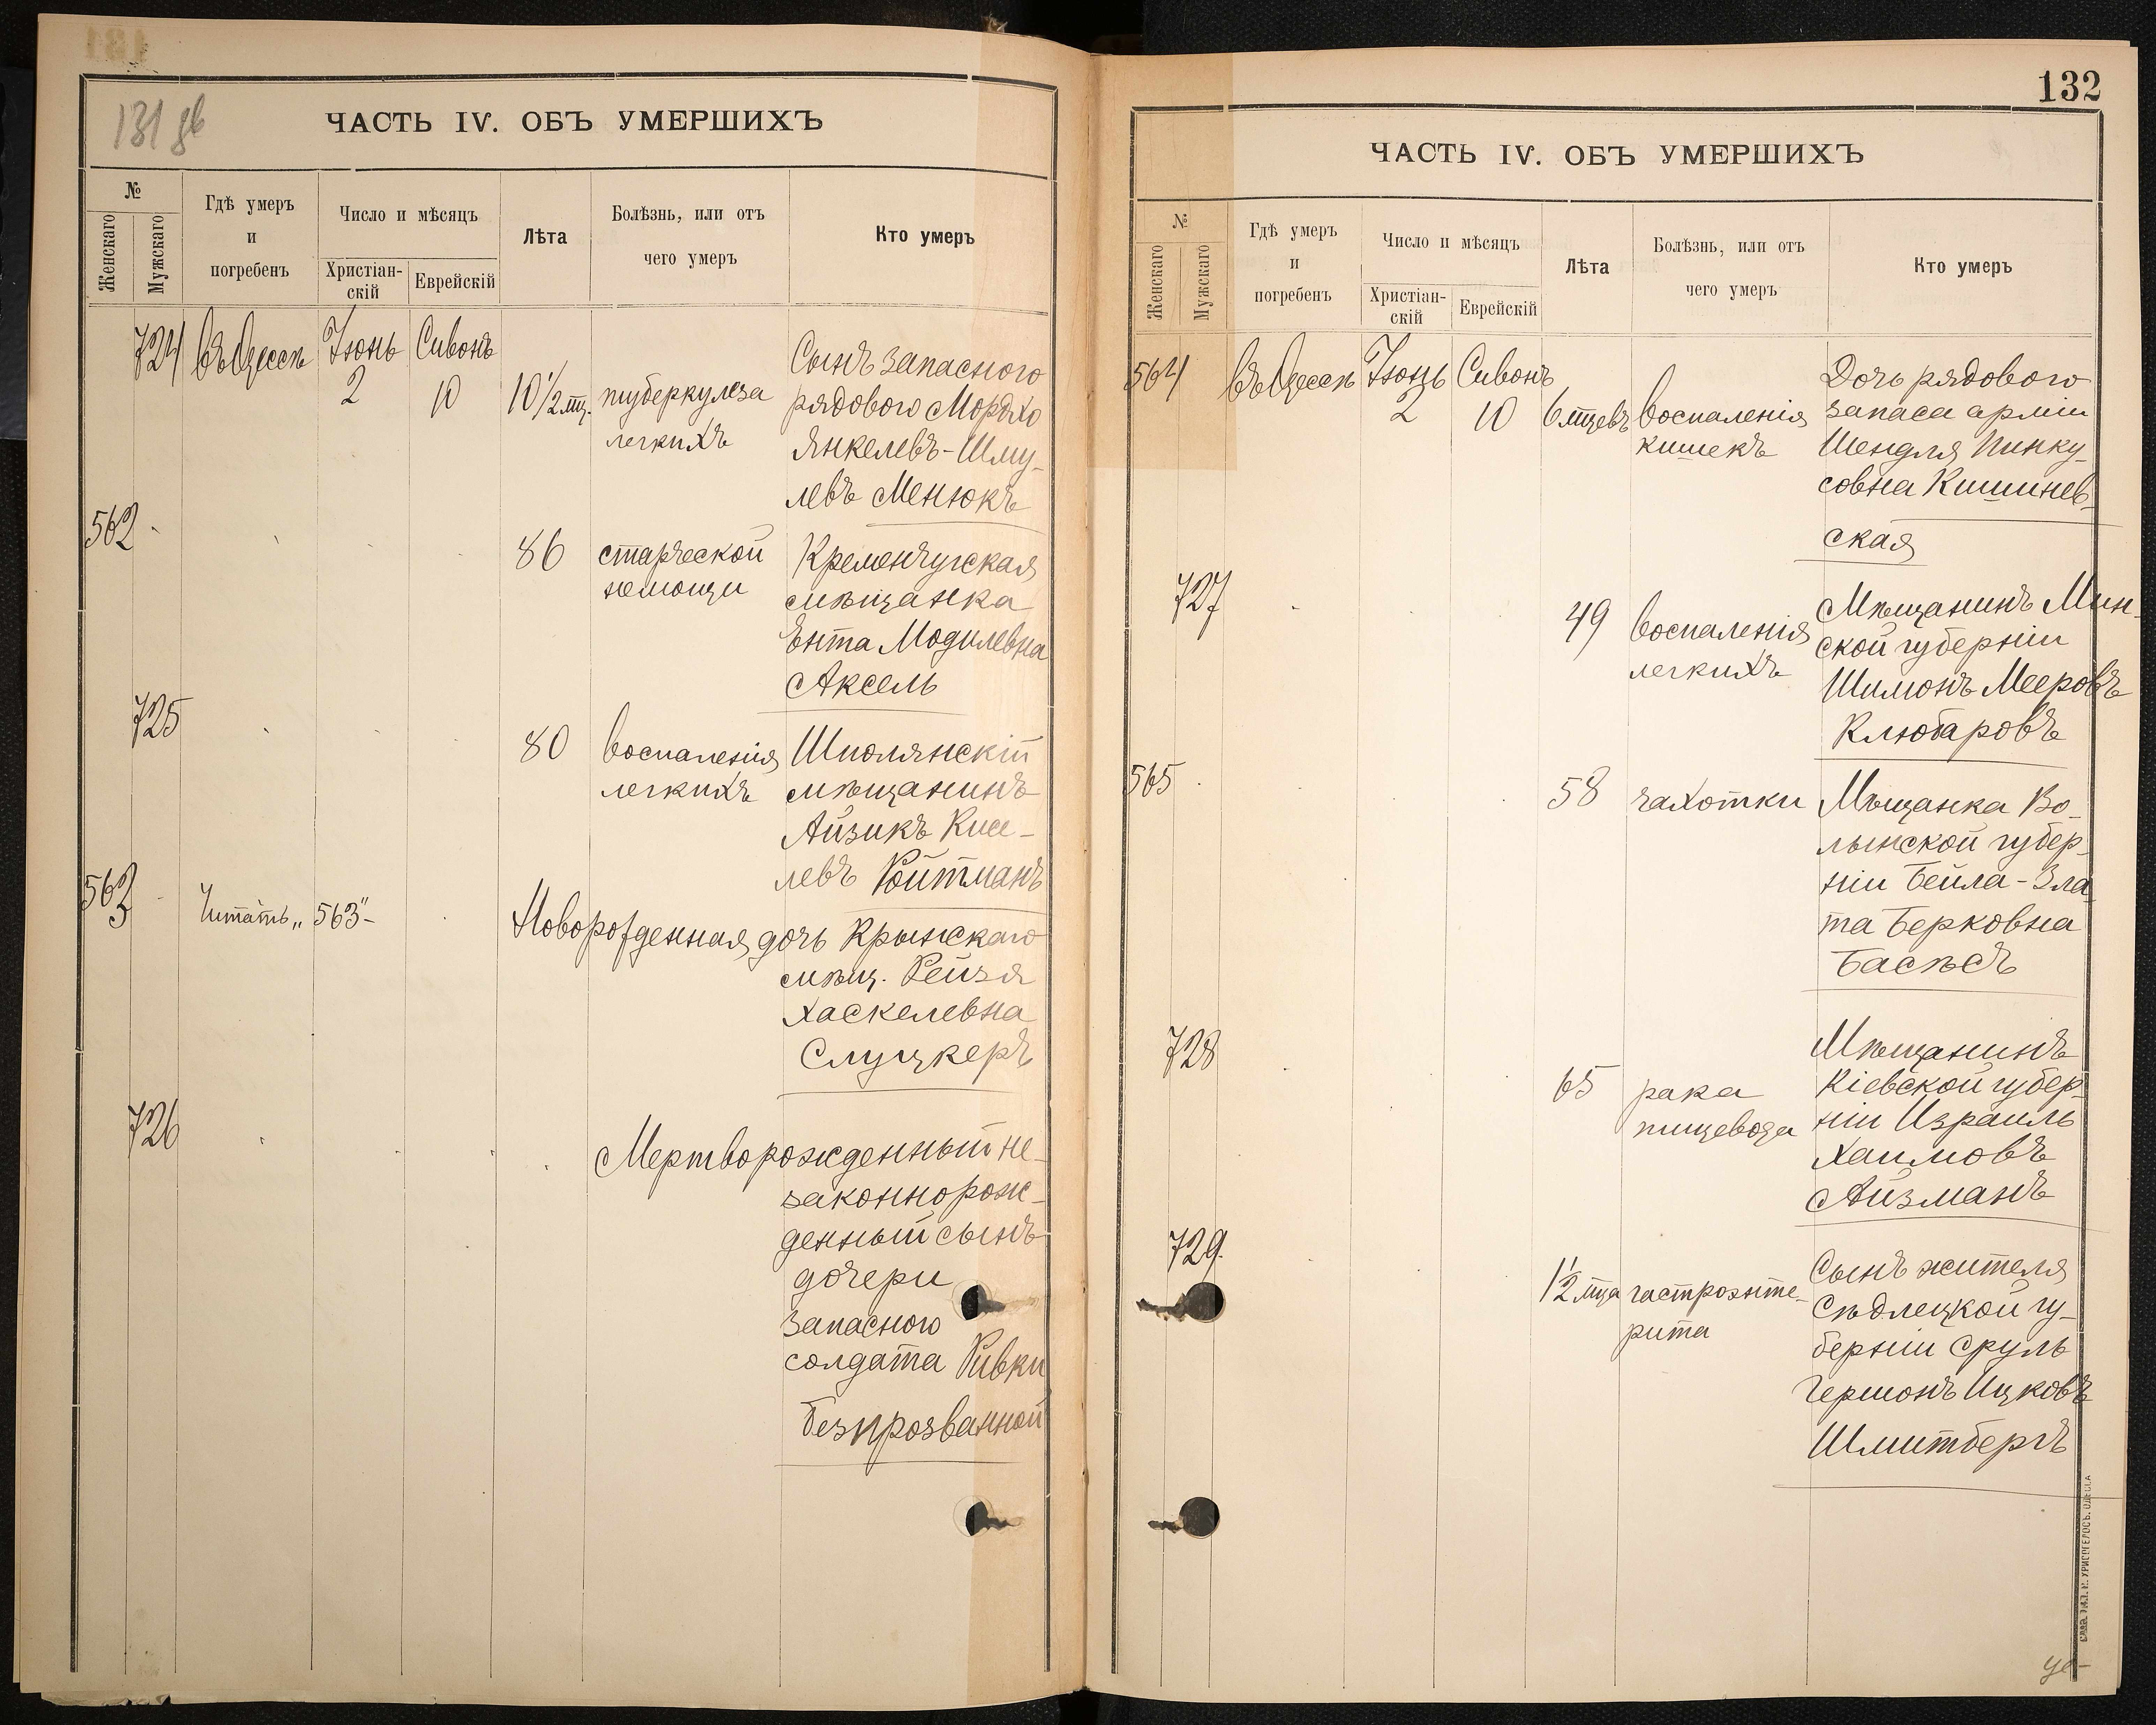 131 об
ЧАСТЬ IV. ОБЪ УМЕРШИХЪ
№
Женскаго
Мужскаго
Гдѣ умеръ
и
погребенъ
Число и мѣсяцъ
Христіан-
скій
Еврейскій
Лѣта
Болѣзнь, или отъ
чего умеръ
Кто умеръ
724 въ Одессѣ Іюнь 2 Сивонъ 10
10 1/2 мц. туберкулеза
легкихъ
Сынъ запасного
рядового Мордко
Янкелевъ-Шму-
левъ Менюкъ
562
86 старческой
немощи
Кременчугская
мѣщанка
Ента Модилевна
Аксель
725
80 воспаленія
легкихъ
Шполянскій
мѣщанинъ
Айзикъ Кисе-
левъ Ройтманъ
563 Читать „563"-
Новорожденная дочь Крынскаго
мѣщ. Рейзя
Хаскелевна
Слуцкеръ
726
Мертворожденный не-
законнорож-
денный сынъ
дочери
запасного
солдата Ривки
Безпрозванной
132
ЧАСТЬ IV. ОБЪ УМЕРШИХЪ
№
Женскаго
Мужскаго
Гдѣ умеръ
и
погребенъ
Число и мѣсяцъ
Христіан-
скій
Еврейскій
Лѣта
Болѣзнь, или отъ
чего умеръ
Кто умеръ
564 въ Одессѣ Іюнь 2 Сивонъ 10
6 мцевъ воспаленія
кишекъ
Дочь рядового
запаса арміи
Шендля Пинку-
совна Кишинев-
ская
727
49 воспаленія
легкихъ
Мѣщанинъ Мин-
ской губерніи
Шимонъ Мееровъ
Клюбаровъ
565
58 чахотки
Мѣщанка Во-
лынской губер-
ніи Бейла-Зла
та Берковна
Басѣсъ
728
65 рака
пищевода
Мѣщанинъ
Кіевской губер-
ніи Израиль
Хаимовъ
Айзманъ
729.
1 1/2 мца гастроэнте-
рита
Сынъ жителя
Сѣдлецкой гу-
берніи Сруль
Гершонъ Ицковъ
Шмитбергъ